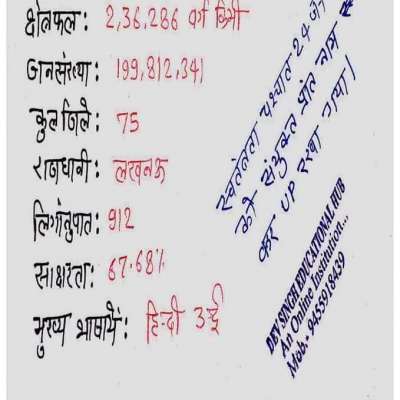 क्षेत्रफल: 2,36,286 वर्ग किमी
जनसंख्या: 199,812,341
कुल जिले: 75
राजधानी: लखनऊ
लिगांनुपात: 912
साक्षरता: 67.68%
मुख्य भाषायें: हिन्दी उर्दू
स्वतंत्रता पश्चात 24 ज
को संयुक्त प्रांत नाम
कर UP रखा गया।
DEV SINGH EDUCATIONAL HUB
An Online Institution...
Mob.- 9455918439